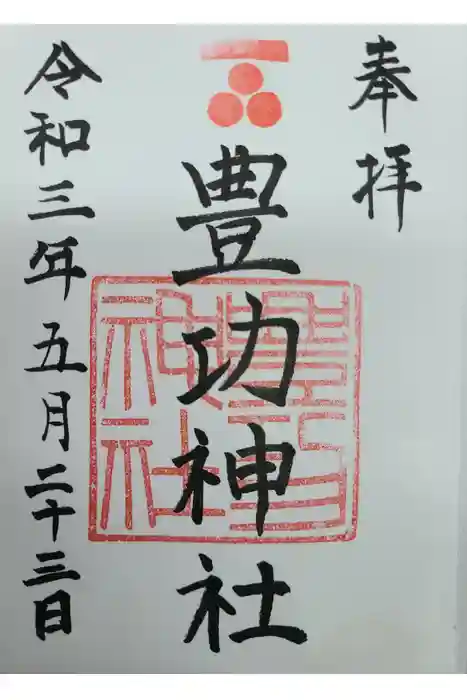 奉拝
豊功神社
豊功神社
令和三年五月二十三日